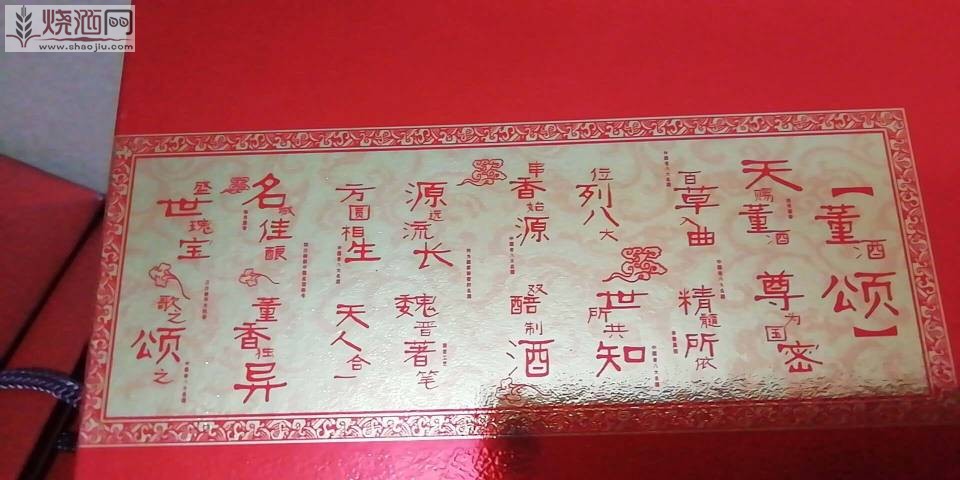 烧酒网
www.shaojiu.com
【董酒颂】
天赐董酒 尊为国密
百草入曲 精髓所依
位列八大 世所共知
串香始源 双醅制酒
源远流长 魏晋著笔
方圆相生 天人合一
名成佳酿 董香独异
盛世瑰宝 歌之颂之